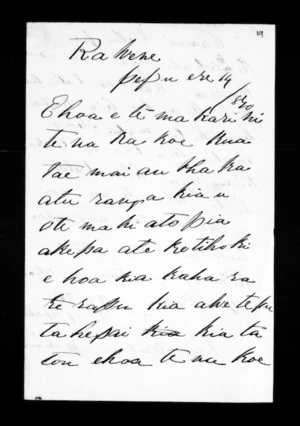 19
Rawene
Pepuere 14
1870
E hoa e te makarini
tena ra koe kua
tae mai au whaka
atu ranga kia u
ote mahi ato pia
akepa ate kotiho ki
e hoa kia kaha ra
te rapu kia ake te pu
take pai kia kia ta
tou ehoa te nu koe